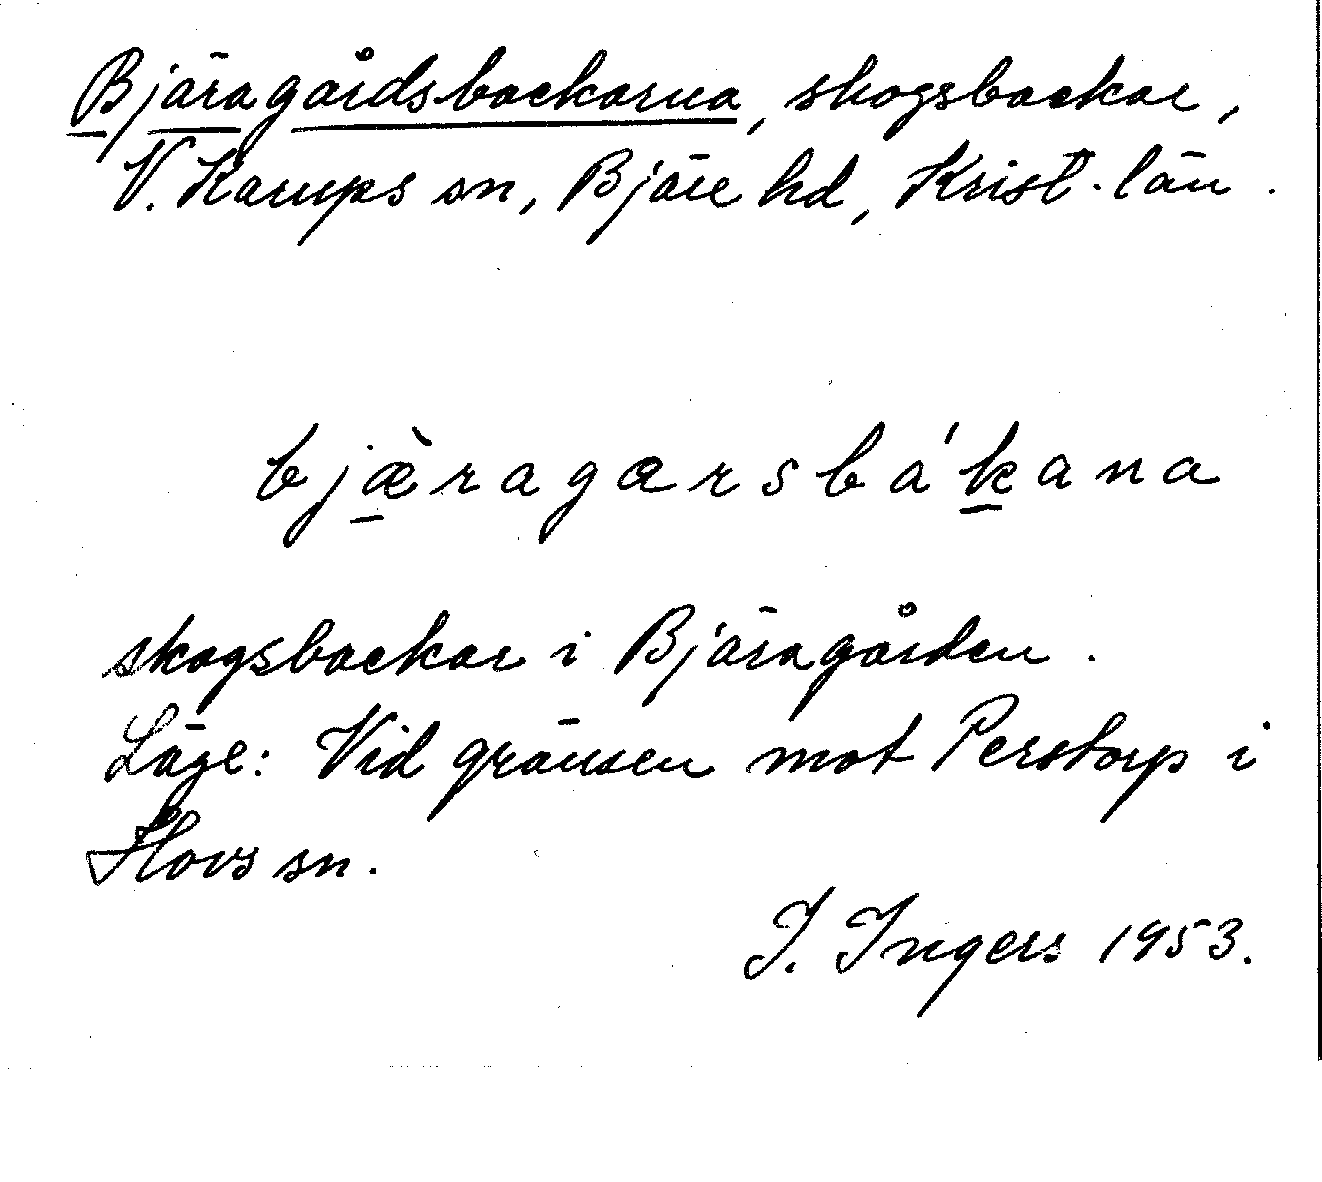 Bjäragårdsbackarna, skogsbackar,
V. Karups sn, Bjäre hd, Krist. län.
bjæ̀ragarsbákana
skogsbackar i Bjäragården.
Läge: Vid gränsen mot Perstorp i
Hovs sn.
I. Ingers 1953.